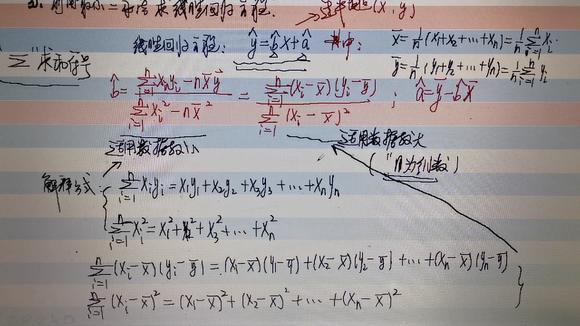 2. 利用最小二乘法求线性回归方程.
过定点(x̄, ȳ)
线性回归方程: ŷ=b̂x+â 其中: x̄=1/n(x₁+x₂+⋯+xₙ)=1/n∑ᵢ₌₁ⁿxᵢ
"∑"求和符号 ȳ=1/n(y₁+y₂+⋯+yₙ)=1/n∑ᵢ₌₁ⁿyᵢ
b̂=(∑ᵢ₌₁ⁿxᵢyᵢ-nx̄ȳ)/(∑ᵢ₌₁ⁿxᵢ²-nx̄²)=(∑ᵢ₌₁ⁿ(xᵢ-x̄)(yᵢ-ȳ))/(∑ᵢ₌₁ⁿ(xᵢ-x̄)²); â=ȳ-b̂x̄
适用数据较小 适用数据较大
("n为组数")
解释公式: ∑ᵢ₌₁ⁿxᵢyᵢ=x₁y₁+x₂y₂+x₃y₃+⋯+xₙyₙ
∑ᵢ₌₁ⁿxᵢ²=x₁²+x₂²+x₃²+⋯+xₙ²
∑ᵢ₌₁ⁿ(xᵢ-x̄)(yᵢ-ȳ)=(x₁-x̄)(y₁-ȳ)+(x₂-x̄)(y₂-ȳ)+⋯+(xₙ-x̄)(yₙ-ȳ)
∑ᵢ₌₁ⁿ(xᵢ-x̄)²=(x₁-x̄)²+(x₂-x̄)²+⋯+(xₙ-x̄)²